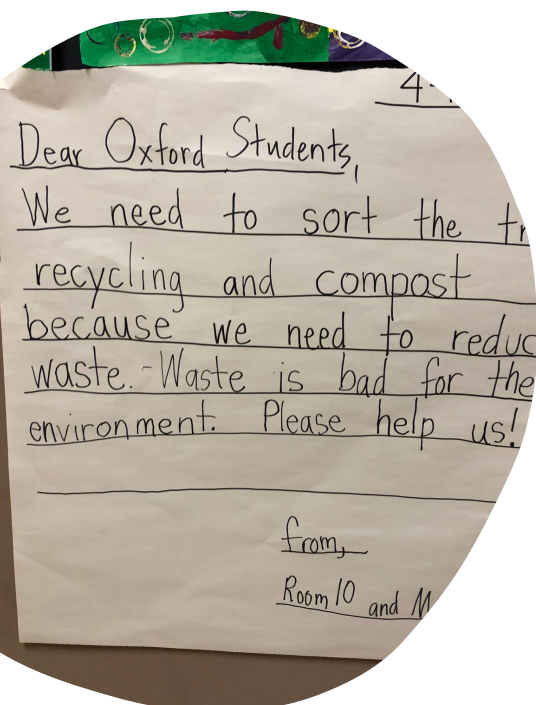 4-
Dear Oxford Students,
We need to sort the
recycling and compost
because we need to
waste.-Waste is bad for the
environment. Please help us!
from,
Room 10 and